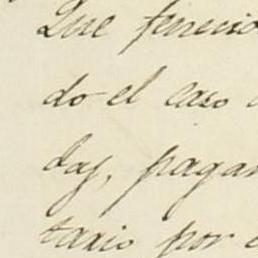 Que fenecio
do el caso
das, pagan
tario por e